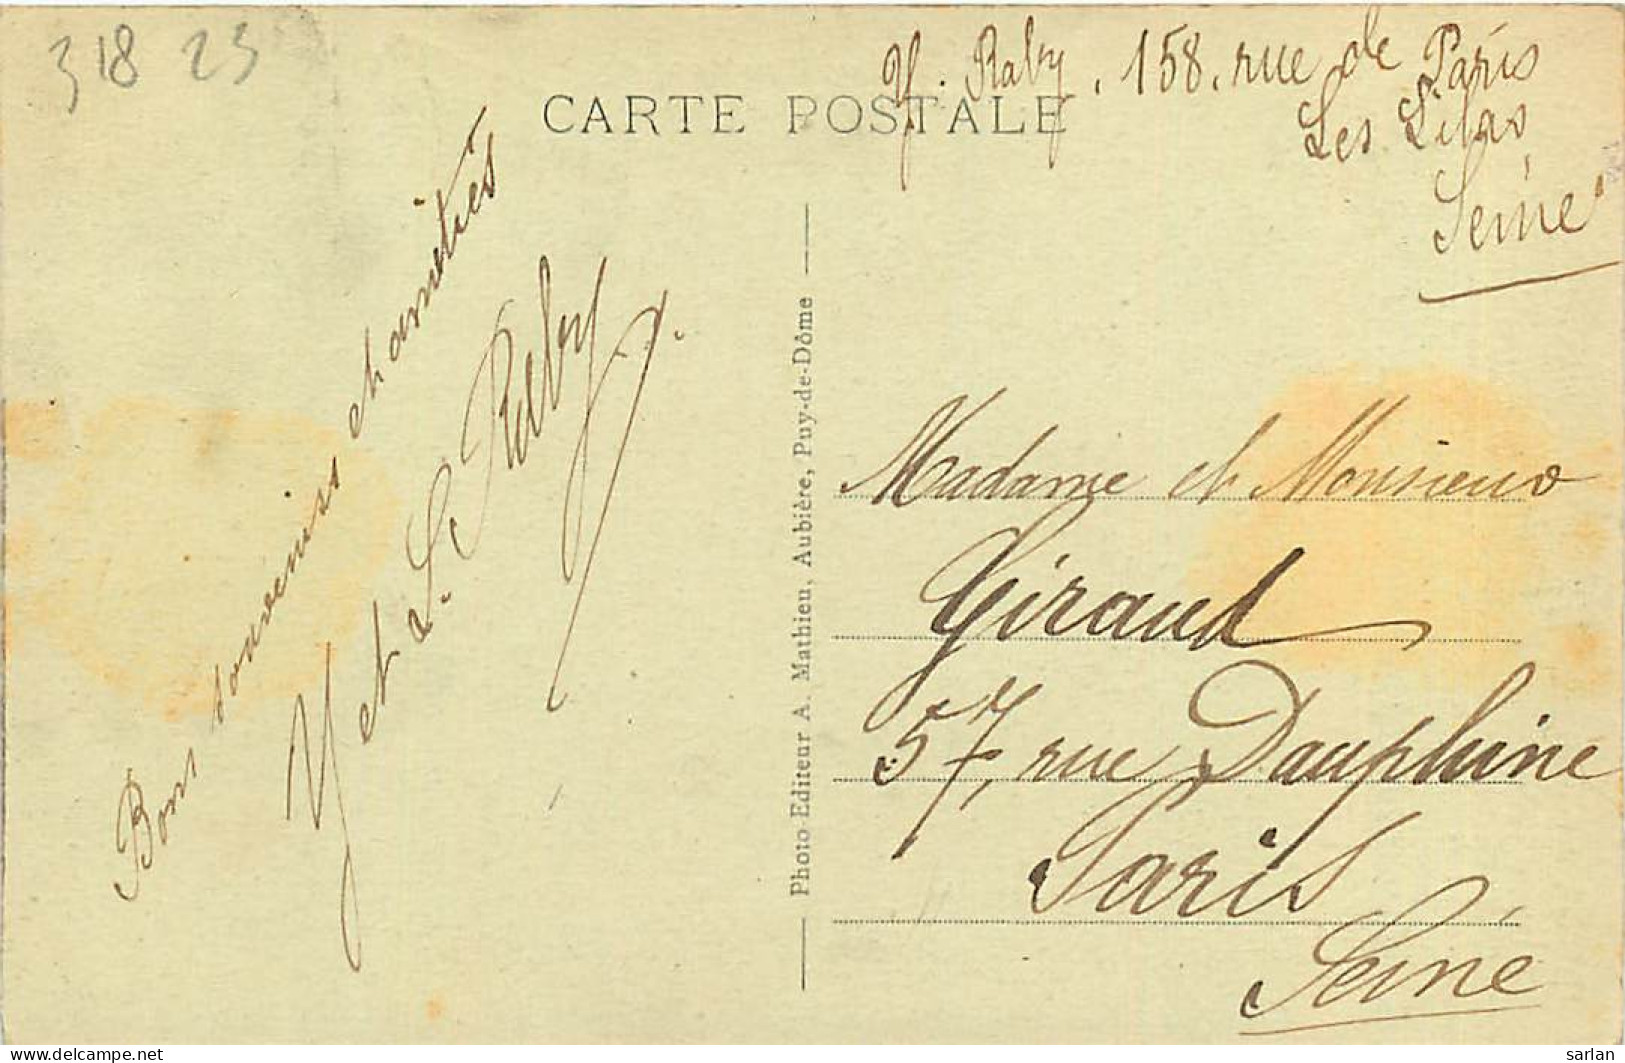 318 23
Y. Raby, 158, rue de Paris
Les Lilas
Seine
CARTE POSTALE
Bons souvenirs et amitiés
Y et L. Raby
Photo-Editeur A. Mathieu, Aubière, Puy-de-Dôme
Madame et Monsieur
Giraud
57, rue Dauphine
Paris
Seine
www.delcampe.net
sarlan